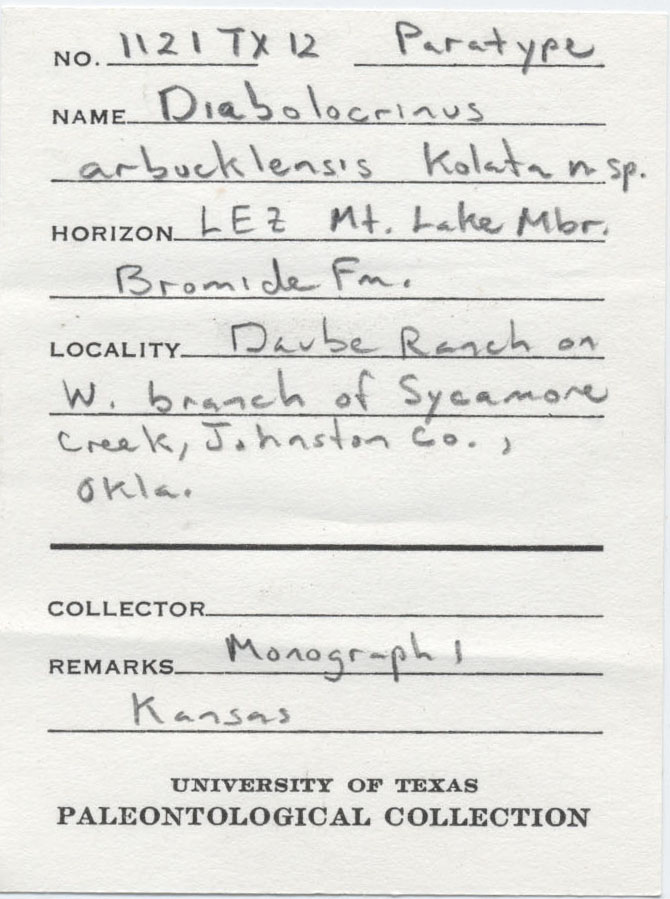 NO. 1121 TX 12 Paratype
NAME Diabolocrinus
arbucklensis Kolata n sp.
HORIZON LEZ Mt. Lake Mbr.
Bromide Fm.
LOCALITY Daube Ranch on
W. branch of Sycamore
Creek, Johnston Co.,
Okla.
COLLECTOR
REMARKS Monograph 1
Kansas
UNIVERSITY OF TEXAS
PALEONTOLOGICAL COLLECTION